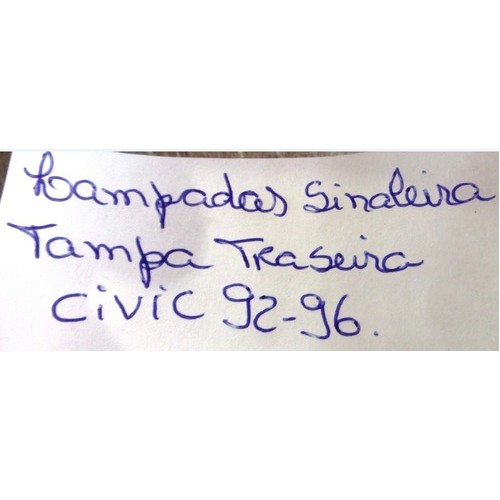 Lampadas Sinaleira
Tampa Traseira
Civic 92-96.